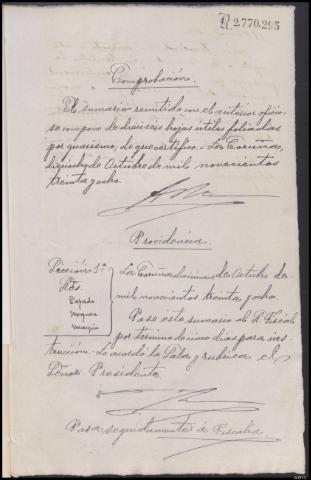 R.2.770.295
Comprobación.
El sumario remitido con el anterior oficio,
se compone de dieciseis hojas útiles foliadas
por guarismo, de que certifico.- La Coruña,
de Octubre de mil novecientos
treinta y ocho.
Providencia.
Sección 1ª
La Coruña de Octubre de
mil novecientos treinta y ocho.
Pase este sumario al S. Fiscal
por termino de cinco dias para ins-
trucción.- Lo acordó la Sala y rubrica el
Señor Presidente
Pasa seguidamente á Fiscalía.